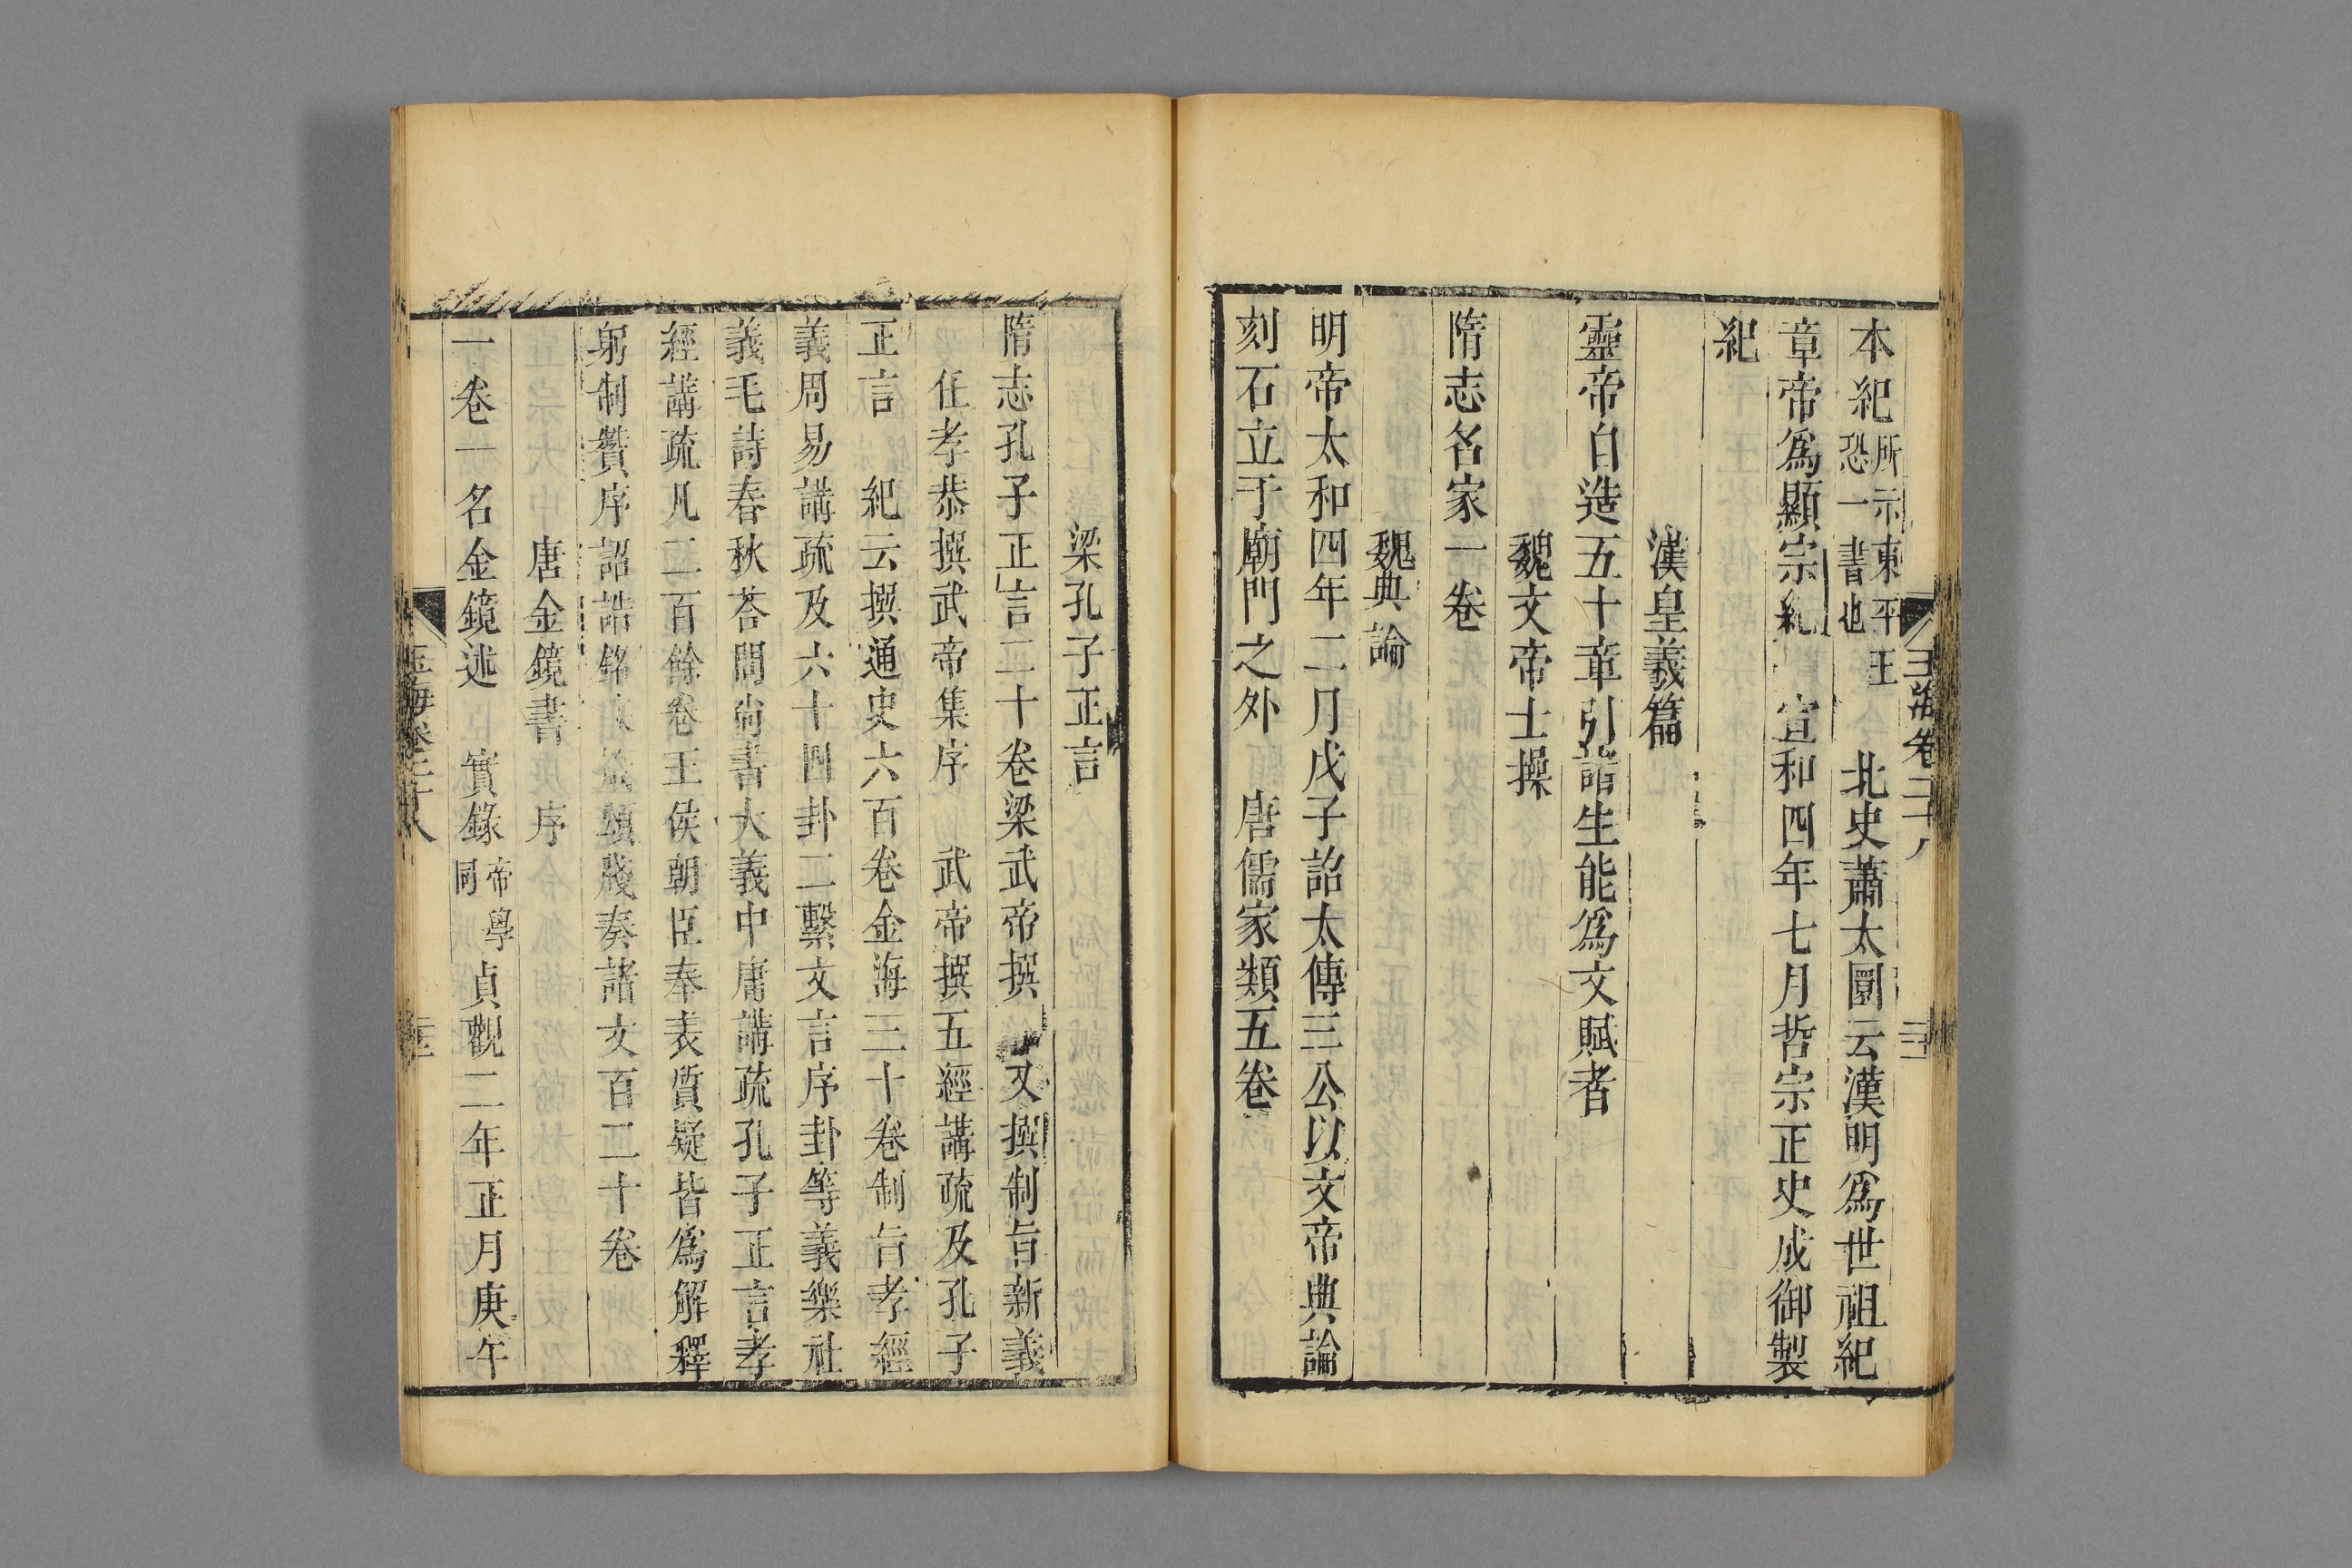 玉海卷二十八
本紀所示東平王恐一書也 北史蕭太圜云漢明爲世祖紀
章帝爲顯宗紀 宣和四年七月哲宗正史成御製
紀
漢皇羲篇
靈帝自造五十章引諸生能爲文賦者
魏文帝士操
隋志名家一卷
魏典論
明帝太和四年二月戊子詔太傅三公以文帝典論
刻石立于廟門之外 唐儒家類五卷
梁孔子正言
隋志孔子正言二十卷梁武帝撰 又撰制旨新義
任孝恭撰武帝集序 武帝撰五經講疏及孔子
正言 紀云撰通史六百卷金海三十卷制旨孝經
義周易講疏及六十四卦二繫文言序卦等義樂社
義毛詩春秋荅問尚書大義中庸講疏孔子正言孝
經講疏凡二百餘卷王侯朝臣奉表質疑皆爲解釋
躬制贊序詔誥銘 頌牋奏諸文百二十卷
唐金鏡書 序
一卷一名金鏡述 實錄帝學同 貞觀二年正月庚午
玉海卷二十八